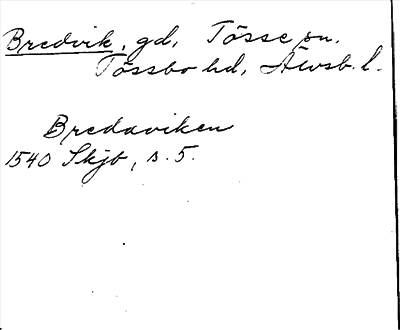 Bredvik, gd, Tösse sn.
Tössbo hd, Älvsb. l.
Bredaviken
1540 Skjb, s. 5.